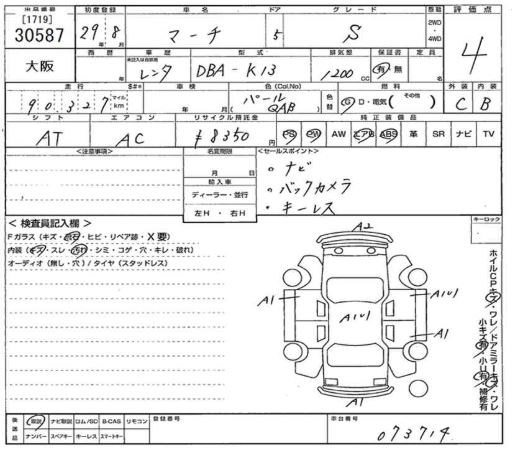 出品番号 初度登録 車名 ドア グレード 駆動 評価点
[1719]
30587 29年8月 マーチ 5 S 2WD・4WD 4
大阪 西暦 年 車歴 レンタ 型式 DBA-K13 排気量 1200 CC 保証書 有・無 定員
走行 $#* 車検 色(Col,No) 色替 燃料 外装 内装
90327 マイル km 年 月 パール QAB G・D・電気・(その他) C B
シフト エアコン リサイクル預託金 純正装備品
AT AC ¥8350 PS PW AW エアB ABS 革 SR ナビ TV
<注意事項> 名変期限 <セールスポイント>
月 日
輸入車
ディーラー・並行
左H・右H
・ナビ
・バックカメラ
・キーレス
キーロック
<検査員記入欄>
Fガラス(キズ・点石・ヒビ・リペア跡・X要)
内装(キブ・スレ・汚れ・シミ・コゲ・穴・キレ・破れ)
オーディオ(無し・穴)/タイヤ(スタッドレス)
A2
A1
A1U1
A1U1
A1
A1
ホイルCPキズ・ワレ/ドアミラーキズ・ワレ
小キズ有・小U有・補修有
後送品 取説 ナビ取説 ロム/SD B-CAS リモコン 登録番号 車台番号
ナンバー スペアキー キーレス スマートキー 073714